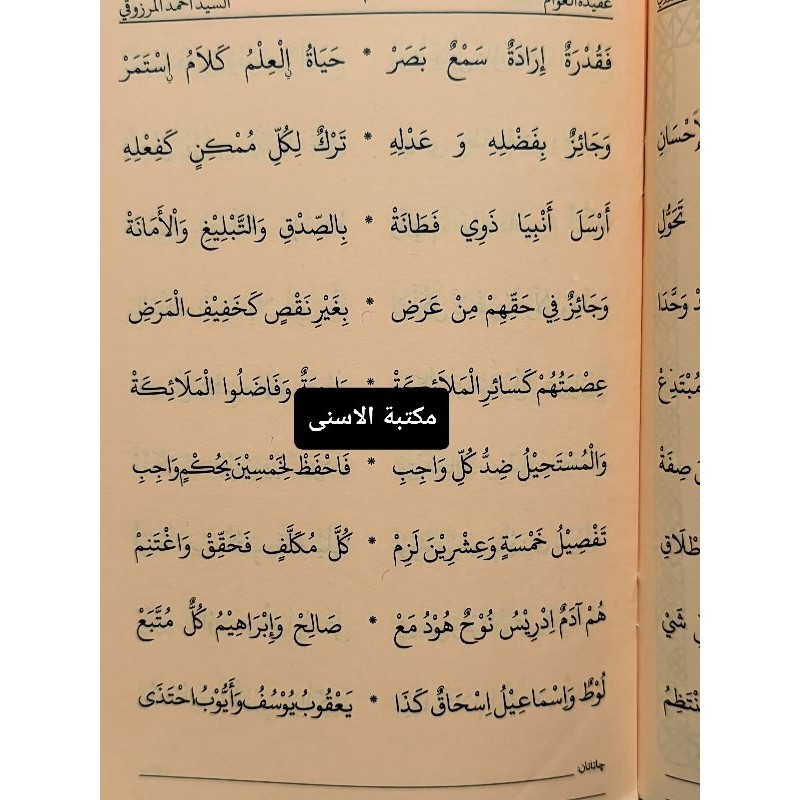 عقيدة العوام السيد أحمد المرزوقي
فَقُدْرَةٌ إِرَادَةٌ سَمْعٌ بَصَرْ * حَيَاةُ اِلْعِلْمُ كَلَامُ اِسْتَمَرْ
وَجَائِزٌ بِفَضْلِهِ وَ عَدْلِهِ * تَرْكٌ لِكُلِّ مُمْكِنٍ كَفِعْلِهِ
أَرْسَلَ أَنْبِيَا ذَوِي فَطَانَةْ * بِالصِّدْقِ وَالتَّبْلِيْغِ وَالْأَمَانَةْ
وَجَائِزٌ فِي حَقِّهِمْ مِنْ عَرَضِ * بِغَيْرِ نَقْصٍ كَخَفِيْفِ الْمَرَضِ
عِصْمَتُهُمْ كَسَائِرِ الْمَلَائِكَةْ * وَفَاضَلُوا الْمَلَائِكَةْ
مكتبة الاسنى
وَالْمُسْتَحِيْلُ ضِدُّ كُلِّ وَاجِبِ * فَاحْفَظْ لِخَمْسِيْنَ بِحُكْمٍ وَاجِبِ
تَفْصِيْلُ خَمْسَةٍ وَعِشْرِيْنَ لَزِمْ * كُلَّ مُكَلَّفٍ فَحَقِّقْ وَاغْتَنِمْ
هُمْ آدَمٌ اِدْرِيْسُ نُوْحٌ هُوْدُ مَعْ * صَالِحْ وَإِبْرَاهِيْمُ كُلٌّ مُتَّبَعْ
لُوْطٌ وَاسْمَاعِيْلُ اِسْحَاقٌ كَذَا * يَعْقُوبُ يُوْسُفُ وَأَيُّوْبُ احْتَذَى
چاتاتان:
تَحَوُّلِ
وَحَّدَا
صِفَةْ
شَيْ